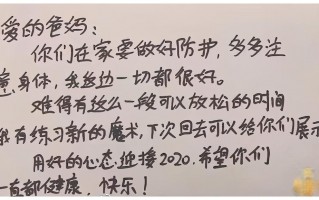 爱的爸妈:
你们在家要做好防护,多多注
意身体,我这边一切都很好。
难得有这么一段可以放松的时间
我有练习新的魔术,下次回去可以给你们展示
用好的心态迎接2020.希望你们
一直都健康、快乐!